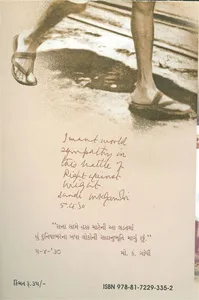 I want world
sympathy in
this battle of
Right against
Might.
Dandi MKGandhi
5.4.30
"સત્તા સામે હકના માટેની આ લડતમાં
હું દુનિયાભરના બધા લોકોની સહાનુભૂતિ માગું છું."
૫-૪-'૩૦ મો. ક. ગાંધી
કિંમત રૂ.
ISBN 978-81-7229-335-2